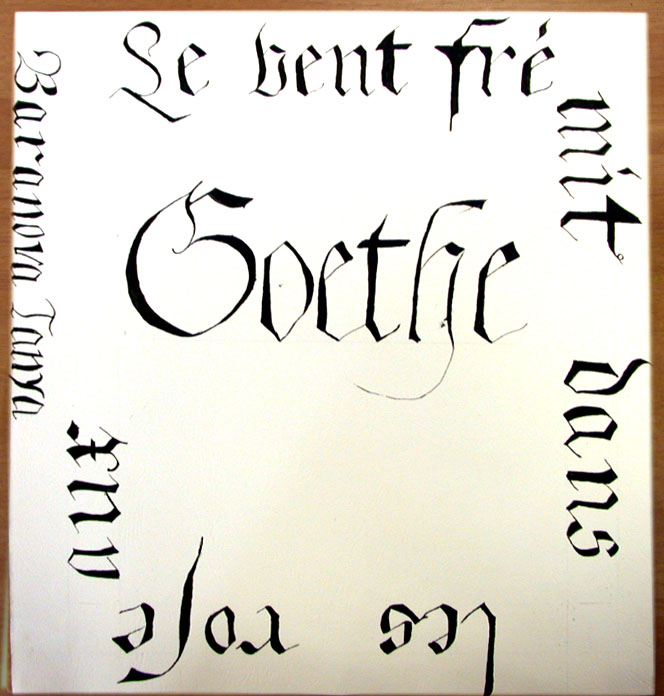 Le vent fré
mit
dans
les roſe
aux
Goethe
Baranova Tanya